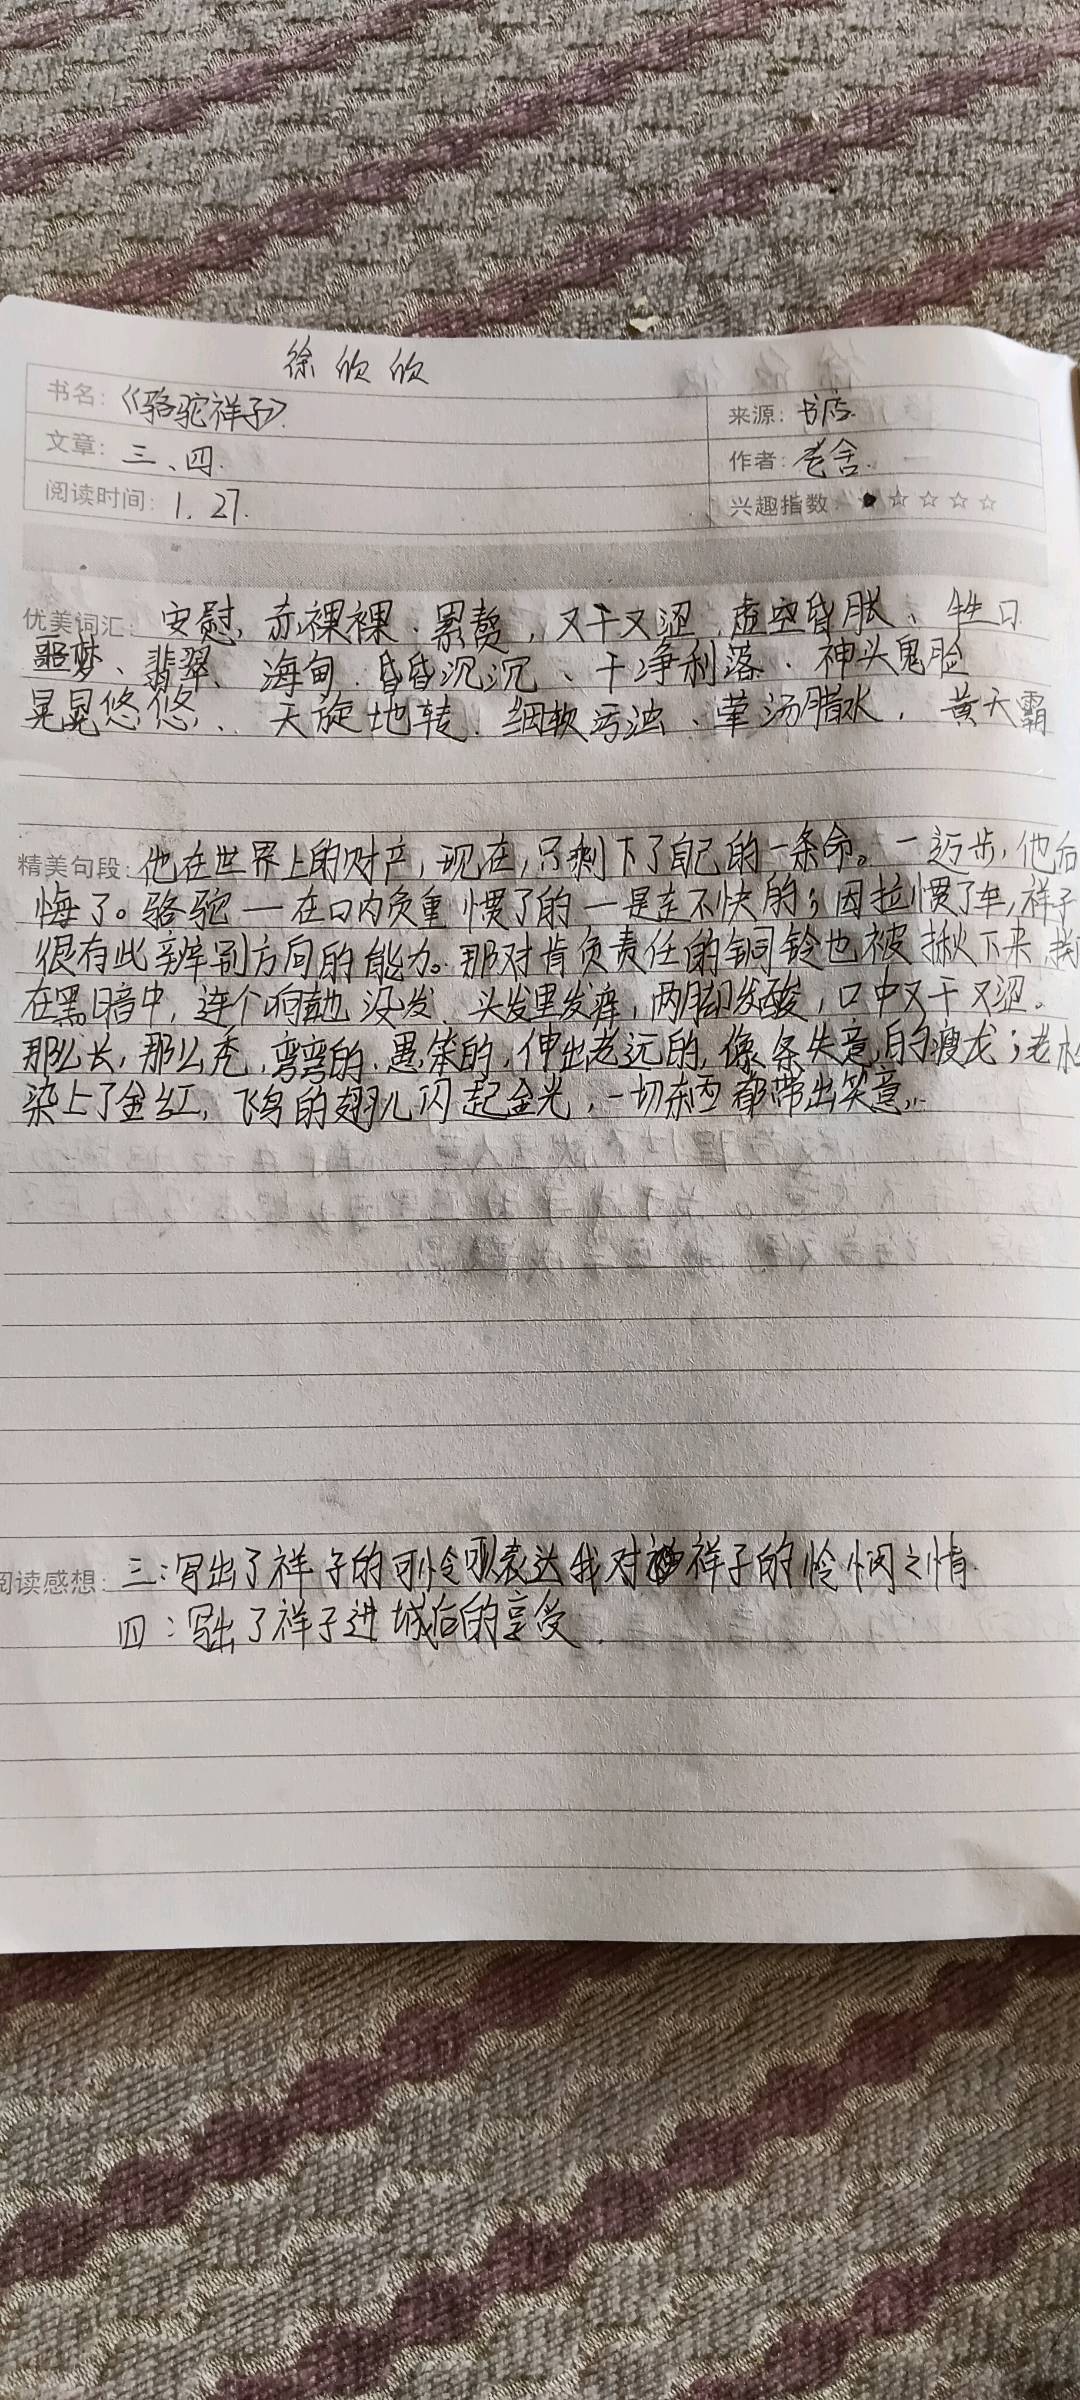 徐欣欣
书名:《骆驼祥子》. 来源:书店.
文章:三、四. 作者:老舍.
阅读时间:1.27. 兴趣指数:
优美词汇:安慰、赤裸裸、累赘,又干又涩、虚空昏胀、牲口
噩梦、翡翠、海甸、昏昏沉沉、干净利落、神头鬼脸
晃晃悠悠、天旋地转、细软污浊、荤汤腊水,黄天霸
精美句段:他在世界上的财产,现在,只剩下了自己的一条命。一迈步,他后
悔了。骆驼—在口内负重惯了的—是走不快的;因拉惯了车,祥子
很有些辨别方向的能力。那对肯负责任的铜铃也被揪下来,掷
在黑暗中,连个响声也没发、头发里发痒,两脚发酸,口中又干又涩。
那么长,那么秃,弯弯的,愚笨的,伸出老远的,像条失意的瘦龙;老松
染上了金红,飞鸟的翅儿闪起金光,一切东西都带出笑意。
阅读感想:三:写出了祥子的可怜表达我对祥子的怜悯之情.
四:写出了祥子进城后的享受.